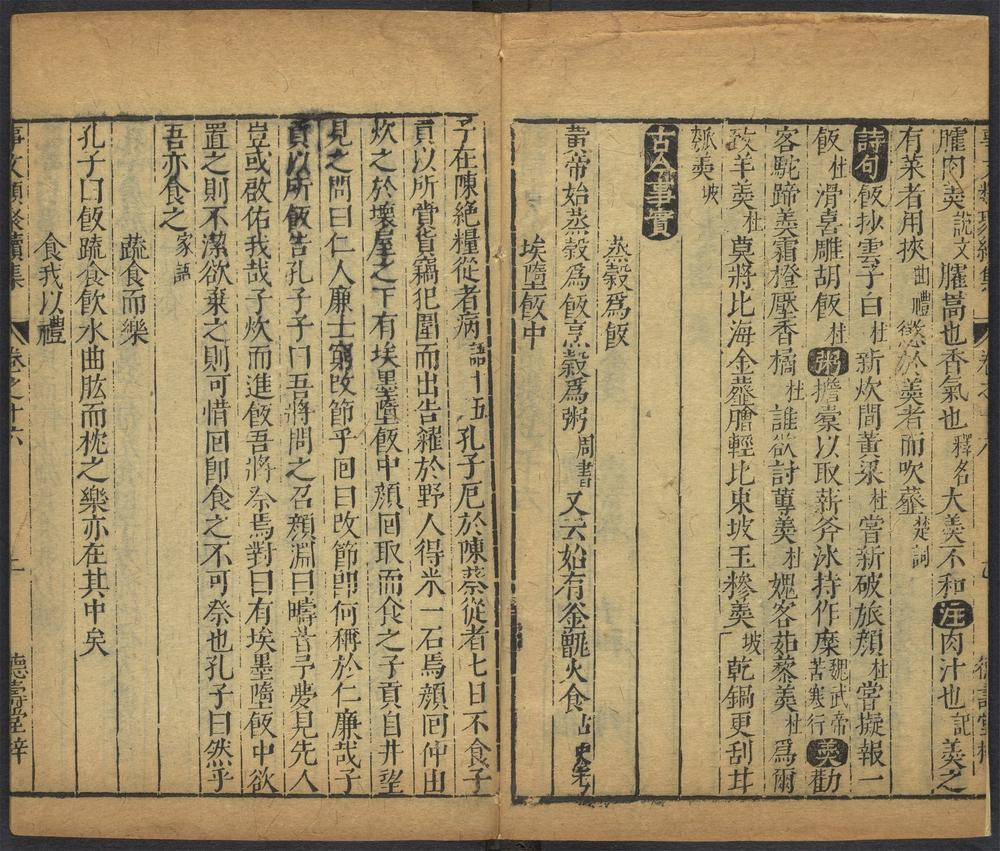 臛肉羮說文臛蒿也香氣也釋名大羮不和注肉汁也記羮之
有菜者用挾曲禮懲於羮者而吹虀楚詞
詩句飯抄雲子白杜新炊間黃粱杜嘗新破旅顏杜嘗擬報一
飯杜滑喜雕胡飯杜粥擔囊以取薪斧冰持作糜魏武帝苦寒行羮勸
客駝蹄羮霜橙壓香橘杜誰欲討蓴羮杜媿客茹藜羮杜爲爾
羊羮杜莫將比海金虀膾輕比東坡玉糝羮坡乾鍋更刮
瓠羮坡
古今事實
蒸穀爲飯
黃帝始蒸穀爲飯烹穀爲粥周書又云始有釜甑火食古史考
埃墮飯中
子在陳絶糧從者病語十五孔子厄於陳蔡從者七日不食子
貢以所賫貨竊犯圍而出告糴於野人得米一石焉顔回仲由
炊之於壞屋之下有埃墨墮飯中顔回取而食之子貢自井望
見之問曰仁人廉士窮改節乎回曰改節即何稱於仁廉哉子
貢以所飯告孔子子曰吾將問之召顔淵曰疇昔予夢見先人
豈或啟佑我哉子炊而進飯吾將祭焉對曰有埃墨墮飯中欲
置之則不潔欲棄之則可惜回卽食之不可祭也孔子曰然乎
吾亦食之家語
蔬食而樂
孔子曰飯蔬食飲水曲肱而枕之樂亦在其中矣
食我以禮
事文類聚續集 卷之十六 德壽堂梓